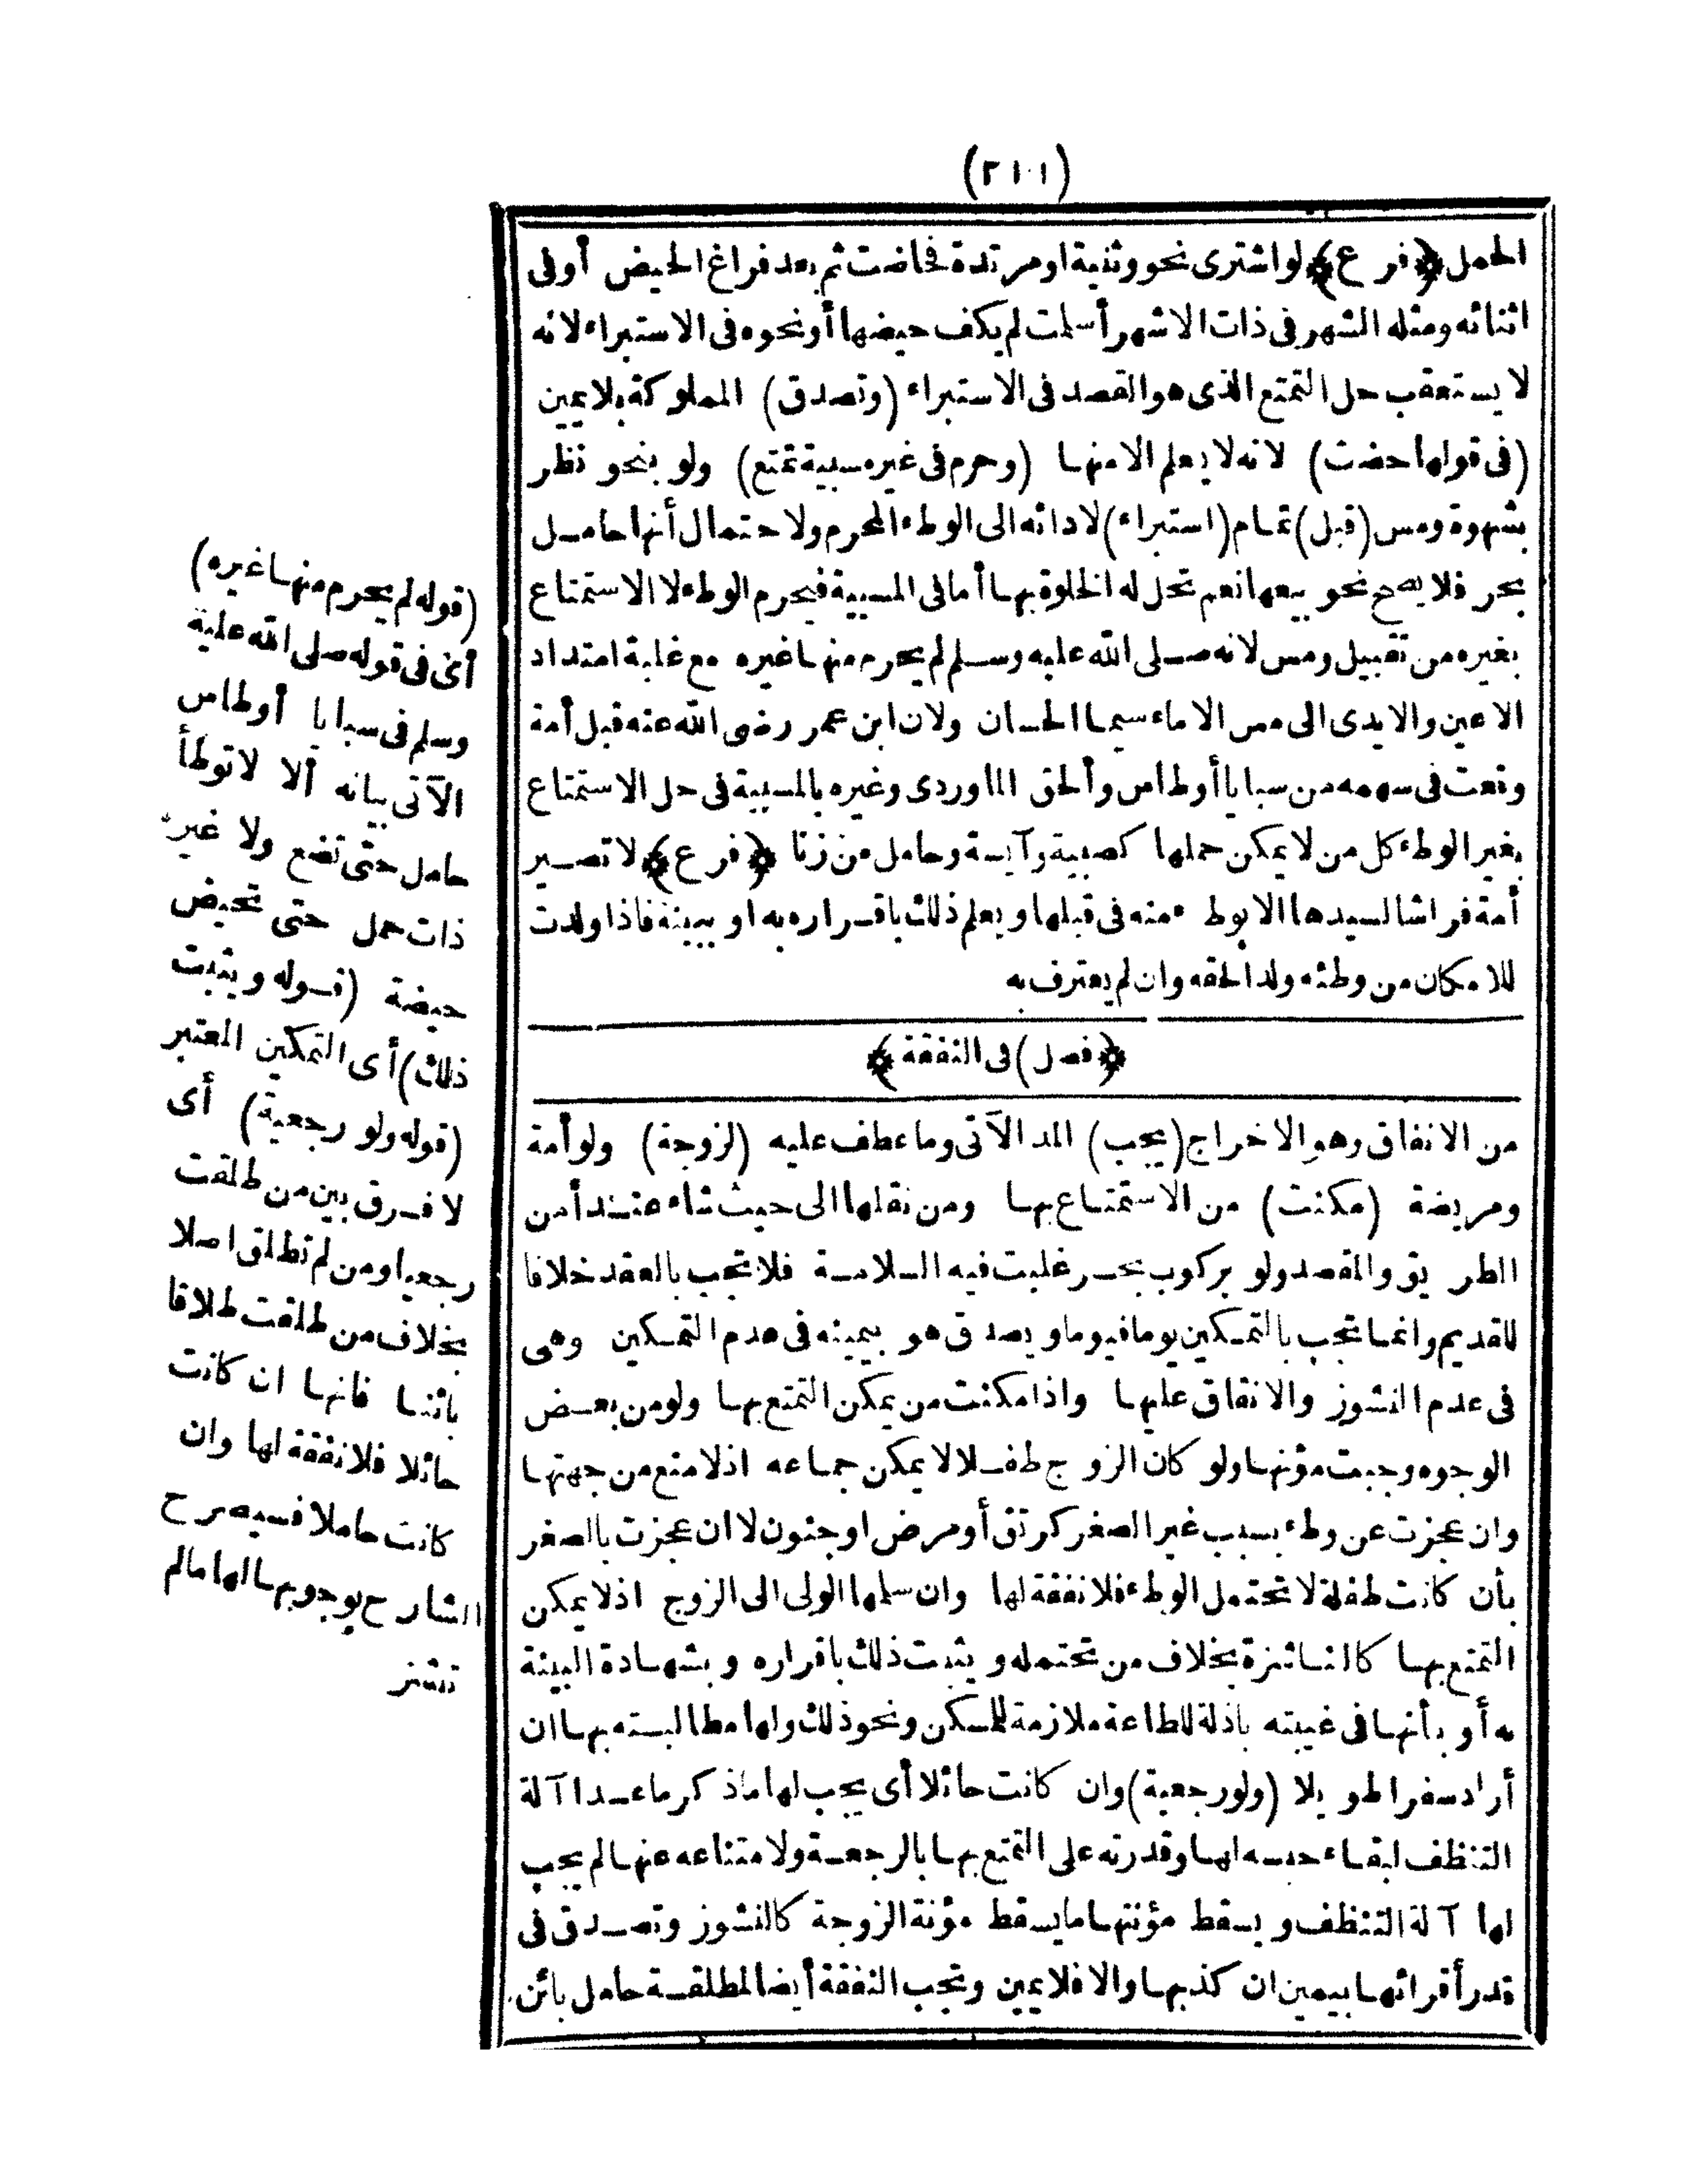 (٢١١)
الحمل ﴿فرع﴾ لو اشترى نحو وثنية او مرتدة فحاضت ثم بعد فراغ الحيض أو فى
اثنائه ومثله الشهر فى ذات الاشهر أسلمت لم يكف حيضها أو نحوه فى الاستبراء لانه
لا يستعقب حل التمتع الذى هو القصد فى الاستبراء (وتصدق) المملوكة بلا يمين
(فى قولها حضت) لانه لا يعلم الا منها (وحرم فى غير مسبية تمتع) ولو بنحو نظر
بشهوة ومس (قبل) تمام (استبراء) لادائه الى الوطء المحرم ولاحتمال أنها حامل
بحر فلا يصح نحو بيعها نعم تحل له الخلوة بها أما فى المسبية فيحرم الوطء لا الاستمتاع
بغيره من تقبيل ومس لانه صلى الله عليه وسلم لم يحرم منها غيره مع غلبة امتداد
الاعين والايدى الى مس الاماء سيما الحسان ولان ابن عمر رضى الله عنه قبل أمة
وقعت فى سهمه من سبايا أوطاس وألحق الماوردى وغيره بالمسبية فى حل الاستمتاع
بغير الوطء كل من لا يمكن حملها كصبية وآيسة وحامل من زنا ﴿فرع﴾ لا تصير
أمة فراشا لسيدها الا بوطء منه فى قبلها ويعلم ذلك باقراره به او ببينة فاذا ولدت
للامكان من وطئه ولد الحقه وان لم يعترف به
﴿فصل) فى النفقة﴾
من الانفاق وهو الاخراج (يجب) المد الآتى وما عطف عليه (لزوجة) ولو أمة
ومريضة (مكنت) من الاستمتاع بها ومن نقلها الى حيث شاء عند أمن
الطريق والمقصد ولو بركوب بحر غلبت فيه السلامة فلا تجب بالعقد خلافا
للقديم وانما تجب بالتمكين يوما فيوما ويصدق هو بيمينه فى عدم التمكين وهى
فى عدم النشوز والانفاق عليها واذا مكنت من يمكن التمتع بها ولو من بعض
الوجوه وجبت مؤنها ولو كان الزوج طفلا لا يمكن جماعه اذ لا منع من جهتها
وان عجزت عن وطء بسبب غير الصغر كرتق أو مرض او جنون لا ان عجزت بالصغر
بأن كانت طفلة لا تحتمل الوطء فلا نفقة لها وان سلمها الولى الى الزوج اذ لا يمكن
التمتع بها كالناشزة بخلاف من تحتمله ويثبت ذلك باقراره وبشهادة البينة
به أو بأنها فى غيبته باذلة للطاعة ملازمة للمسكن ونحو ذلك ولها مطالبته بها ان
أراد سفرا طويلا (ولو رجعية) وان كانت حائلا أى يجب لها ما ذكر ما عدا آلة
التنظف لبقاء حبسه لها وقدرته على التمتع بها بالرجعة ولامتناعه عنها لم يجب
لها آلة التنظف ويسقط مؤنتها ما يسقط مؤنة الزوجة كالنشوز وتصدق فى
قدر أقرائها بيمين ان كذبها والا فلا يمين وتجب النفقة أيضا لمطلقة حامل بائن
(قوله لم يحرم منها غيره)
أى فى قوله صلى الله عليه
وسلم فى سبايا أوطاس
الآتى بيانه ألا لا توطأ
حامل حتى تضع ولا غير
ذات حمل حتى تحيض
حيضة (قوله ويثبت
ذلك) أى التمكين المعتبر
(قوله ولو رجعية) أى
لا فرق بين من طلقت
رجعيا ومن لم تطلق اصلا
بخلاف من طلقت طلاقا
بائنا فانها ان كانت
حائلا فلا نفقة لها وان
كانت حاملا فسيصرح
الشارح بوجوبها لها مالم
تنشز